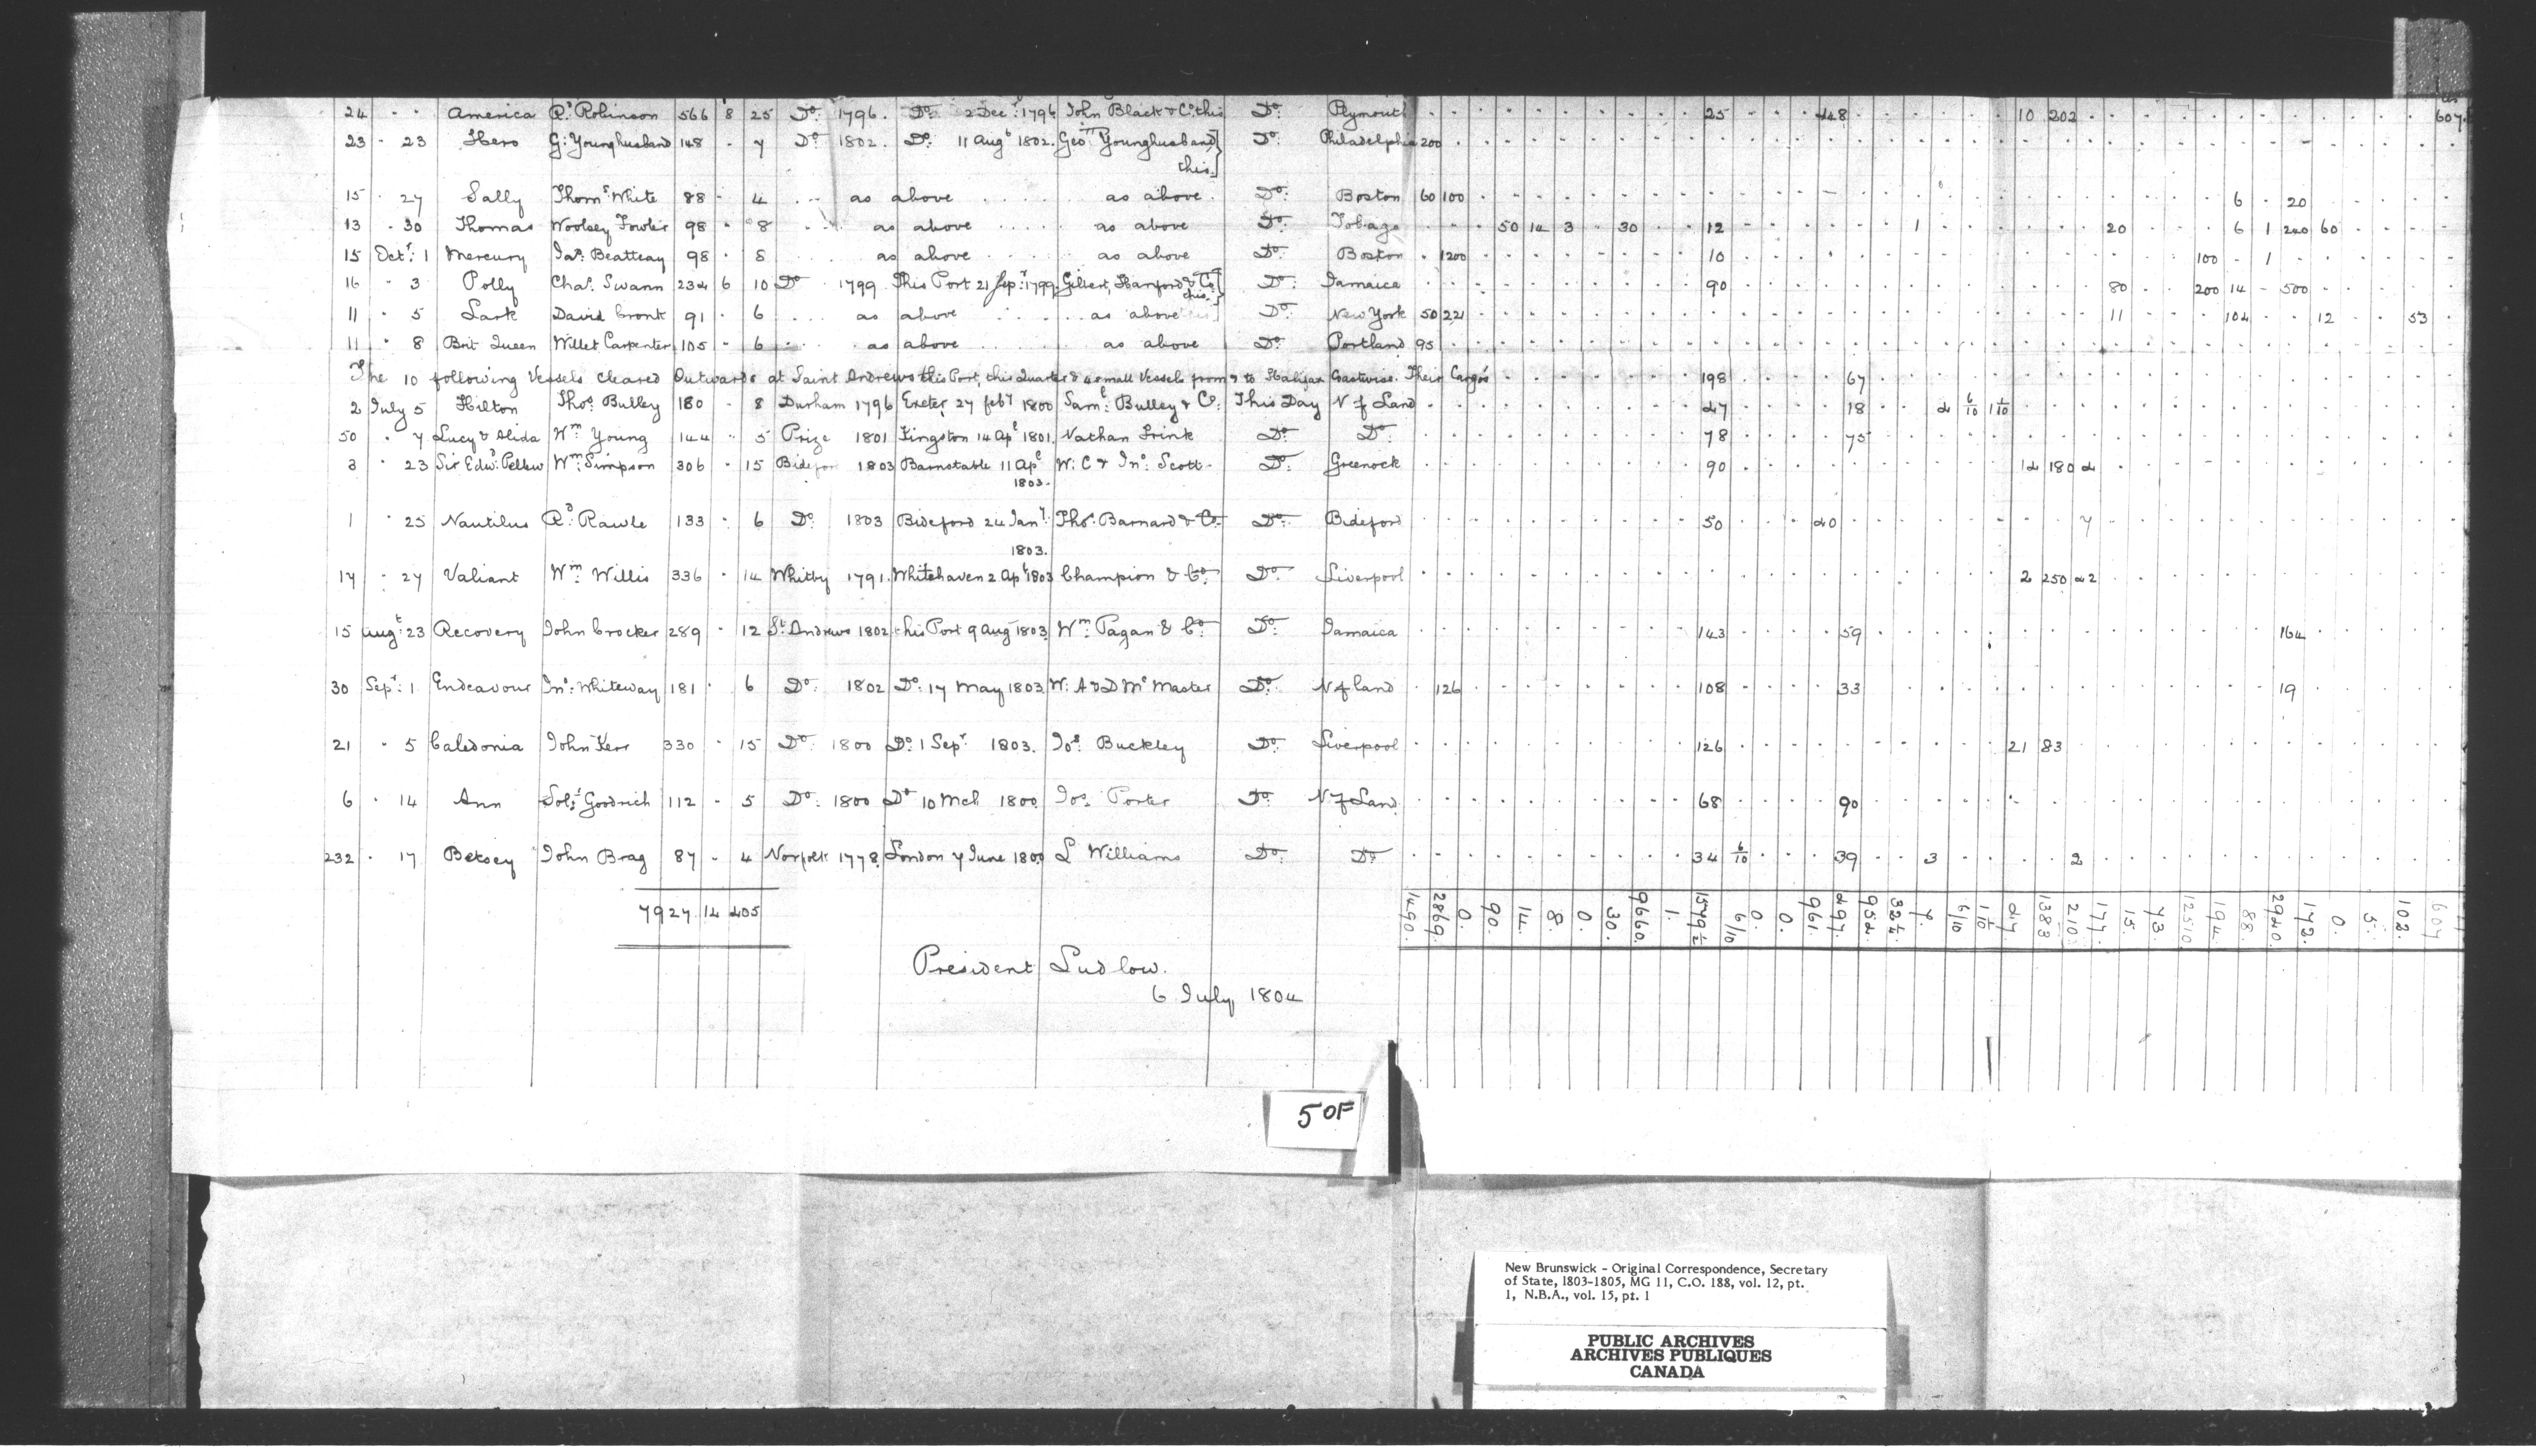 24 · · America Rd Robinson 566 8 25 Do 1796. Do 2 Decr 1796 John Black & Co this Do Plymouth 25 448 10 202 607
23 - 23 Hero G: Younghusband 148 - 7 Do 1802. Do 11 Augt 1802. Geo: Younghusband Do Philadelphia 200
this.
15 · 27 Sally Thoms White 88 - 4 as above as above Do Boston 60 100 6 20
13 · 30 Thomas Woolsey Fowler 98 · 8 as above as above Do Tobago 50 14 3 30 12 1 20 6 1 240 60
15 Octr: 1 Mercury Jas: Beatteay 98 · 8 as above as above Do Boston 1200 10 100 - 1
16 - 3 Polly Chas. Swann 234 6 10 Do 1799 This Port 21 Sep: 1799. Gilbert, Hanford & Co Do Jamaica 90 80 200 14 500
this.
11 · 5 Lark David Cronk 91 · 6 as above as above Do New York 50 221 11 104 12 53
11 · 8 Brit Queen Willet Carpenter 105 - 6 as above as above Do Portland 95
The 10 following Vessels cleared Outwards at Saint Andrews this Port, this Quarter & 4 small Vessels from & to Halifax Coastwise. Their Cargos 198 67
2 July 5 Hilton Thos. Bulley 180 - 8 Durham 1796 Exeter 27 feby 1800 Saml: Bulley & Co: This Day N f Land 47 18 4 6/10 1 1/10
50 · 7 Lucy & Alida Wm Young 144 - 5 Prize 1801 Kingston 14 Apl 1801. Nathan Frink Do Do 78 75
3 · 23 Sir Edwd: Pellew Wm: Simpson 306 - 15 Bideford 1803 Barnstable 11 Apl W: C & Jno: Scott - Do: Greenock 90 14 180 4
1803.
1 · 25 Nautilus Rd: Rawle 133 · 6 Do 1803 Bideford 24 Jany: Thos: Barnard & Co Do Bideford 50 40 7
1803.
17 - 27 Valiant Wm: Willis 336 · 14 Whitby 1791. Whitehaven 2 Apl 1803 Champion & Co. Do Liverpool 2 250 42
15 Augt: 23 Recovery John Crocker 289 · 12 St Andrews 1802 this Port 9 Aug 1803 Wm: Pagan & Co Do Jamaica 143 59 164
30 Sepr: 1 Endeavour Jno: Whiteway 181 · 6 Do: 1802 Do: 17 May 1803 W: A & D Mc Master Do N f land 126 108 33 19
21 · 5 Caledonia John Kerr 330 · 15 Do: 1800 Do: 1 Sepr 1803. Jos: Buckley Do Liverpool 126 21 83
6 · 14 Ann Goodrich 112 - 5 Do: 1800 Do 10 Mch 1800. Jos. Porter Do N f Land 68 90
232 · 17 Betsey John Brag 87 - 4 Norfolk 1778. London 7 June 1800 L Williams Do Do 34 6/10 39 3 2
7927 14 405
1490. 2869. 0. 90. 14. 8. 0. 30. 9660. 1. 1579½ 6/10 0. 0. 961. 497. 952. 324. 7. 6/10 1 1/10 47. 1383 210 177. 15. 73. 12510 194. 88. 2940. 172. 0. 5. 102. 607
President Ludlow.
6 July, 1804
5 OF
New Brunswick - Original Correspondence, Secretary
of State, 1803-1805, MG 11, C.O. 188, vol. 12, pt.
1, N.B.A., vol. 15, pt. 1
PUBLIC ARCHIVES
ARCHIVES PUBLIQUES
CANADA